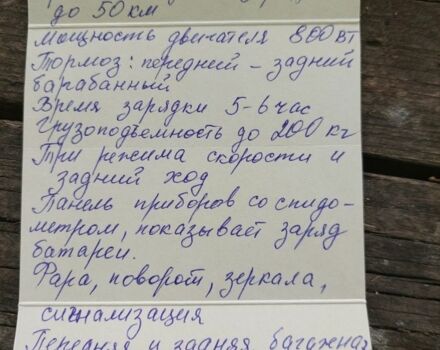 до 50 км
Мощность двигателя 800 вт
Тормоз: передний - задний
барабанный
Время зарядки 5-6 час
Грузоподъемность до 200 кг
Три режима скорости и
задний ход
Панель приборов со спидо-
метром, показывает заряд
батареи.
Фара, поворот, зеркала,
сигнализация
Передняя и задняя багажна